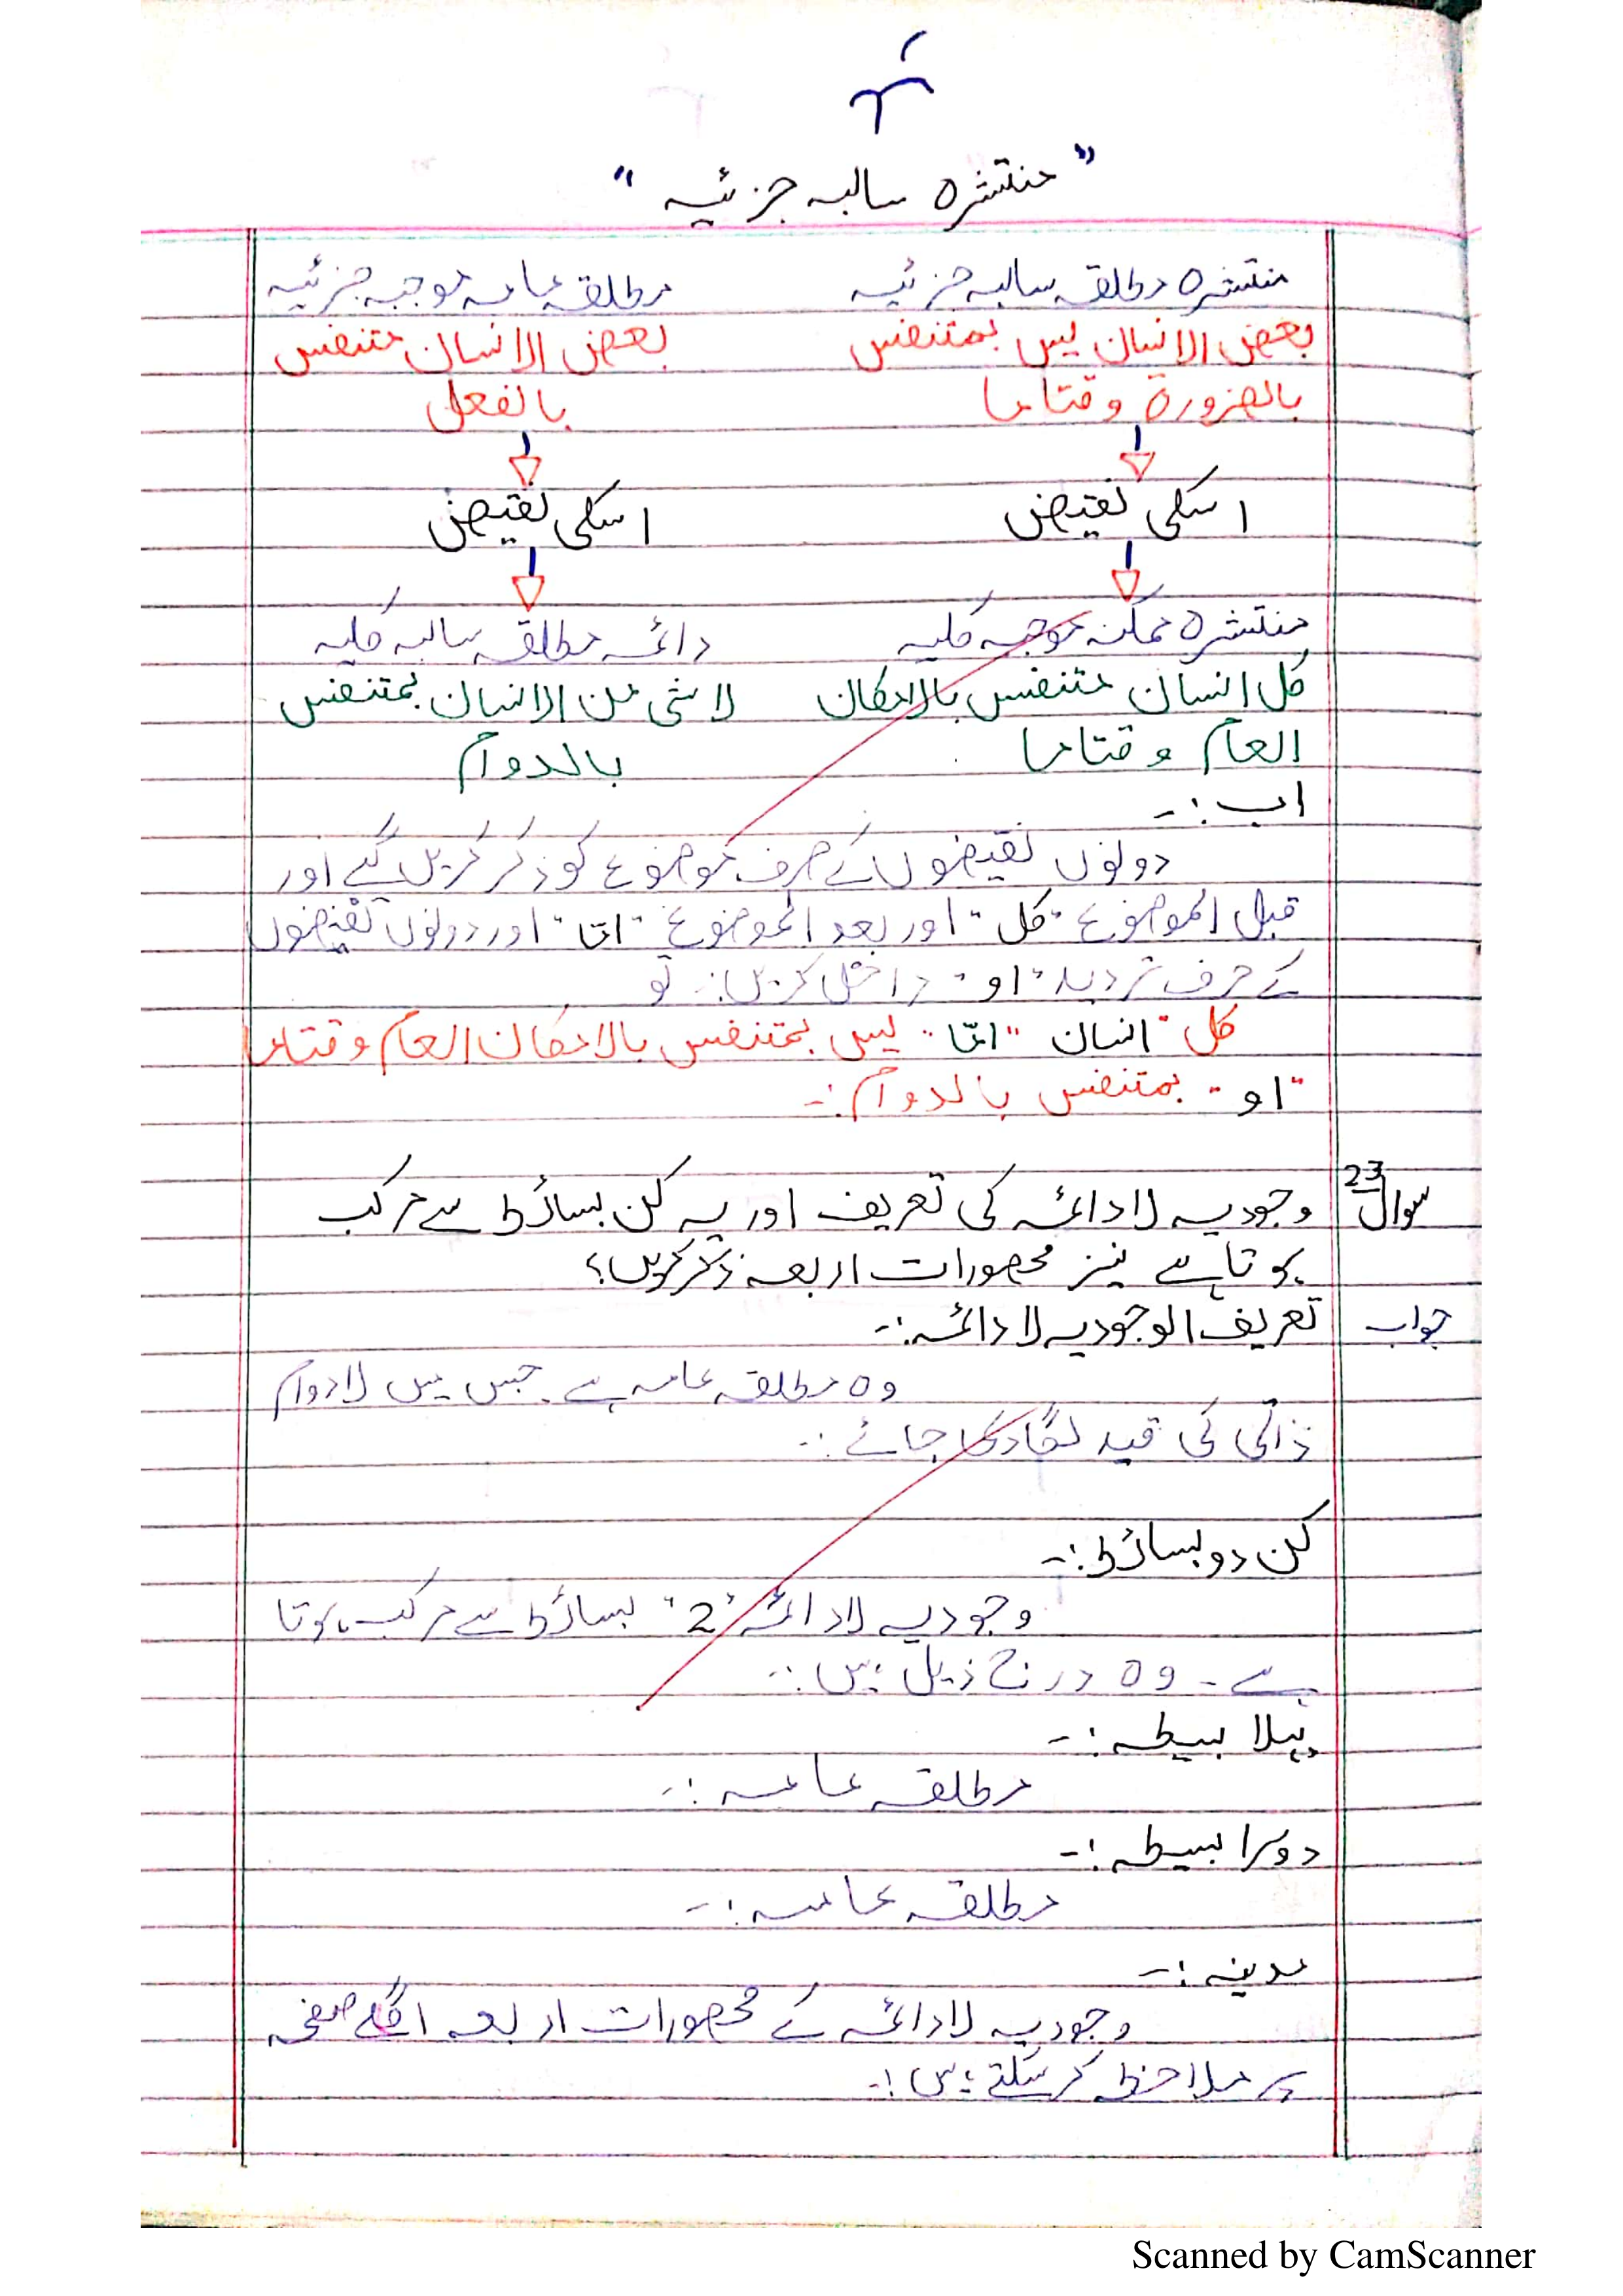 "منتشرہ سالبہ جزئیہ"
منتشرہ مطلقہ سالبہ جزئیہ    مطلقہ عامہ موجبہ جزئیہ
بعض الانسان لیس بمتنفس    بعض الانسان متنفس
بالضرورة وقتاما    بالفعل
اسکی نقیض    اسکی نقیض
منتشرہ ممکنہ موجبہ کلیہ    دائمہ مطلقہ سالبہ کلیہ
کل انسان متنفس بالامکان    لا شی من الانسان بمتنفس
العام وقتاما    بالدوام
اب :-
دونوں نقیضوں کے صرف موضوع کو ذکر کریں گے اور
قبل الموضوع "کل" اور بعد الموضوع "امّا" اور دونوں نقیضوں
کے حرف تردید "او" داخل کریں :- تو
کل "انسان "امّا" لیس بمتنفس بالامکان العام وقتاما
"او" بمتنفس بالدوام :-
سوال 23 وجودیہ لا دائمہ کی تعریف اور یہ کن بسائط سے مرکب
ہوتا ہے نیز محصورات اربعہ ذکر کریں؟
جواب تعریف الوجودیہ لا دائمہ :-
وہ مطلقہ عامہ ہے جس میں لا دوام
ذاتی کی قید لگا دی جائے :-
کن دو بسائط :-
وجودیہ لا دائمہ "2" بسائط سے مرکب ہوتا
ہے - وہ درج ذیل ہیں :-
پہلا بسیطہ :-
مطلقہ عامہ :-
دوسرا بسیطہ :-
مطلقہ عامہ :-
مدینہ :-
وجودیہ لا دائمہ کے محصورات اربعہ اگلے صفحہ
پر ملاحظہ کر سکتے ہیں :-
Scanned by CamScanner